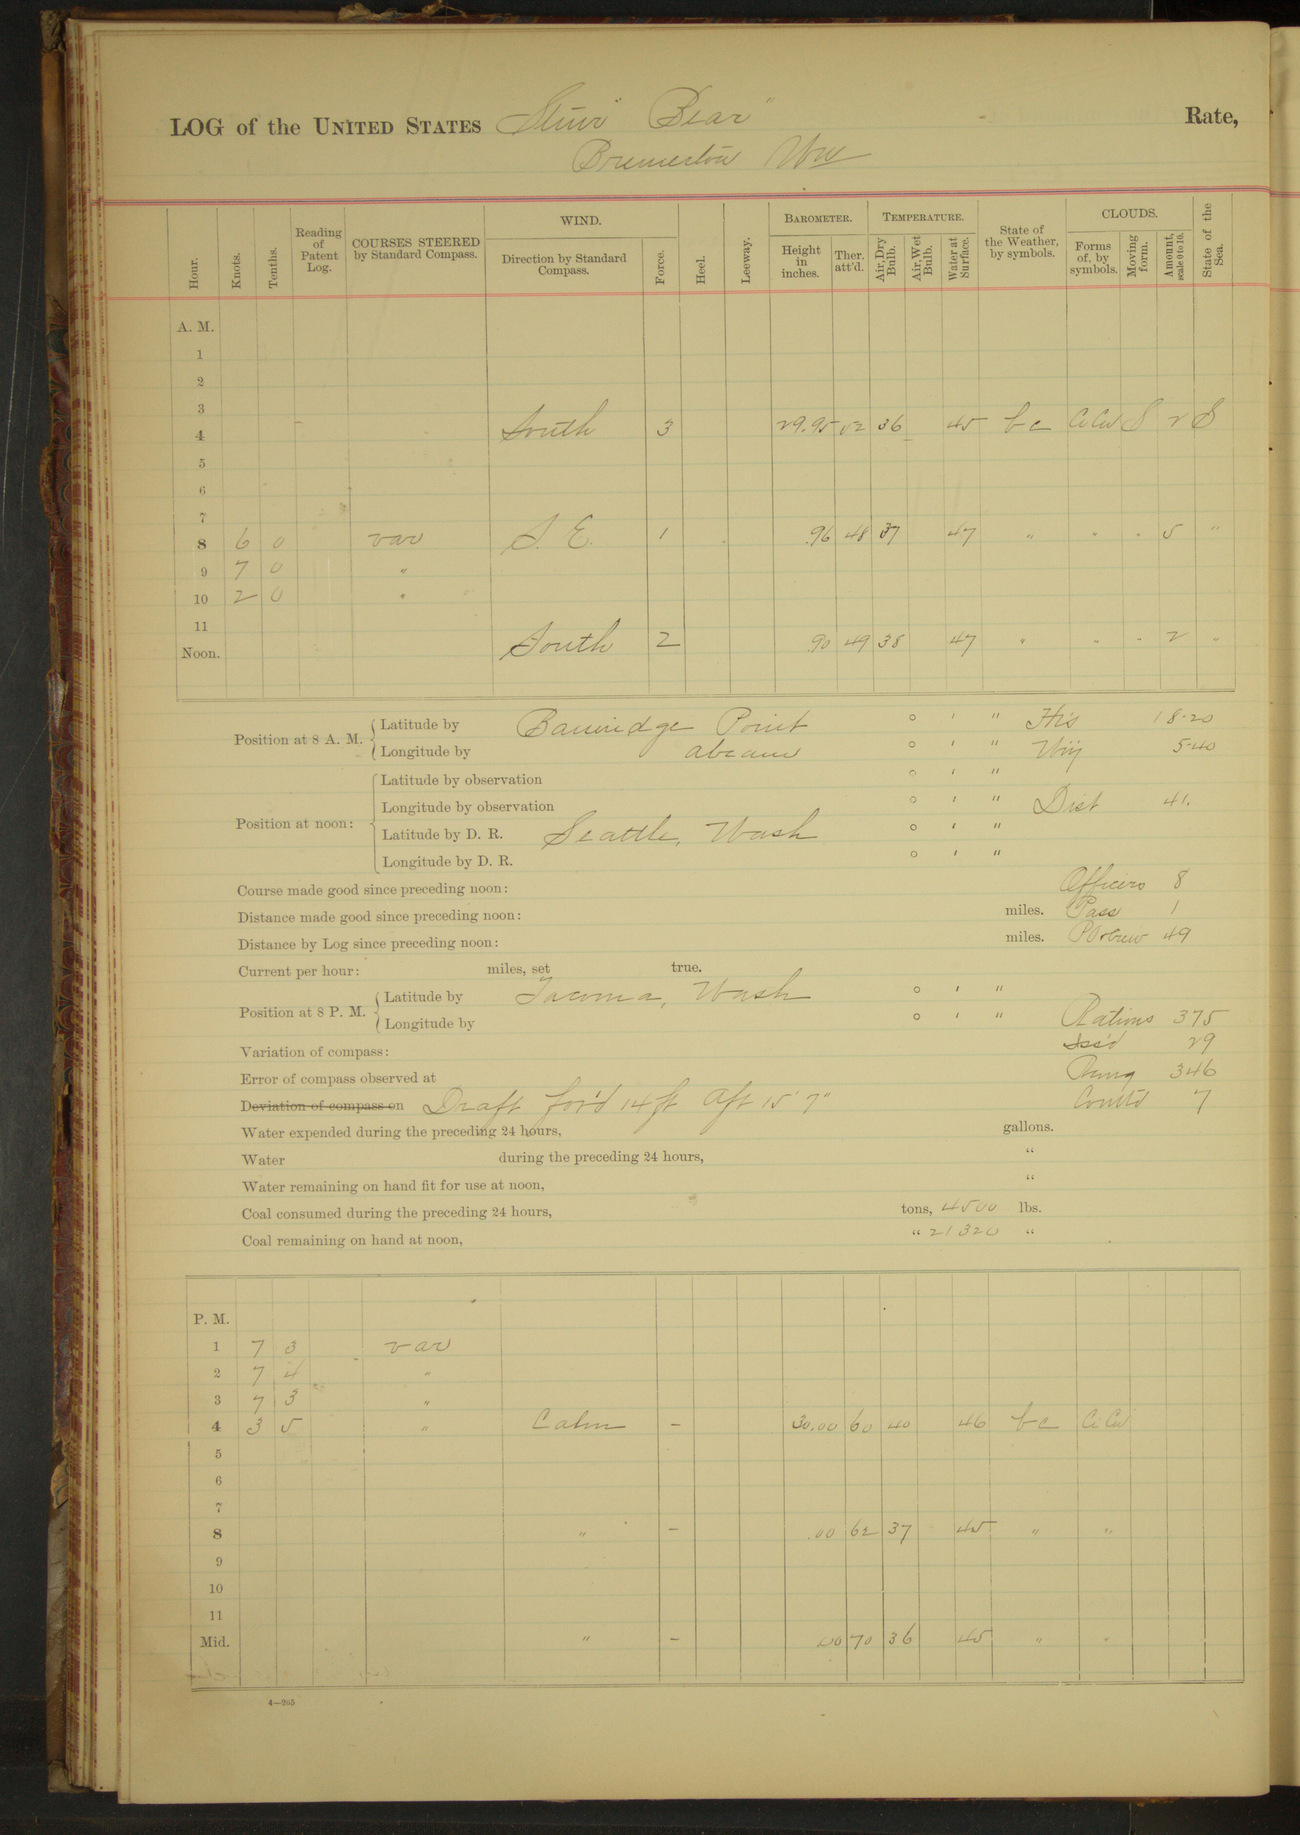 LOG of the UNITED STATES Stmr "Bear" Rate,
Bremerton Wn
Hour. Knots. Tenths. Reading of Patent Log. COURSES STEERED by Standard Compass. WIND. Direction by Standard Compass. Force. Heel. Leeway. BAROMETER. Height in inches. Ther. att'd. TEMPERATURE. Air, Dry Bulb. Air, Wet Bulb. Water at Surface. State of the Weather, by symbols. CLOUDS. Forms of, by symbols. Moving form. Amount, scale 0 to 10. State of the Sea.
A. M.
1
2
3
4 South 3 29.95 52 36 45 bc Ci Cu S 2 S
5
6
7
8 6 0 var S. E. 1 .96 48 37 47 " " " 5 "
9 7 0 "
10 2 0 "
11
Noon. South 2 .90 49 38 47 " " " 2 "
Position at 8 A. M. Latitude by Bainridge Point ° ' " His 18-20
Longitude by abeam ° ' " 5-40
Position at noon: Latitude by observation ° ' "
Longitude by observation ° ' " Dist 41.
Latitude by D. R. Seattle, Wash ° ' "
Longitude by D. R. ° ' "
Course made good since preceding noon: Officers 8
Distance made good since preceding noon: miles. Pass 1
Distance by Log since preceding noon: miles. 49
Current per hour: miles, set true.
Position at 8 P. M. Latitude by Tacoma, Wash ° ' "
Longitude by ° ' " Rations 375
Variation of compass: Iss'd 29
Error of compass observed at 346
Deviation of compass on Draft for'd 14 ft Aft 15' 7" Com'td 7
Water expended during the preceding 24 hours, gallons.
Water during the preceding 24 hours, "
Water remaining on hand fit for use at noon, "
Coal consumed during the preceding 24 hours, tons, 4500 lbs.
Coal remaining on hand at noon, " 21320 "
P. M.
1 7 3 var
2 7 4 "
3 7 3 "
4 3 5 " Calm - 30.00 60 40 46 bc Ci Cu
5
6
7
8 " - .00 62 37 45 " "
9
10
11
Mid. " - .00 70 36 45 " "
4—265